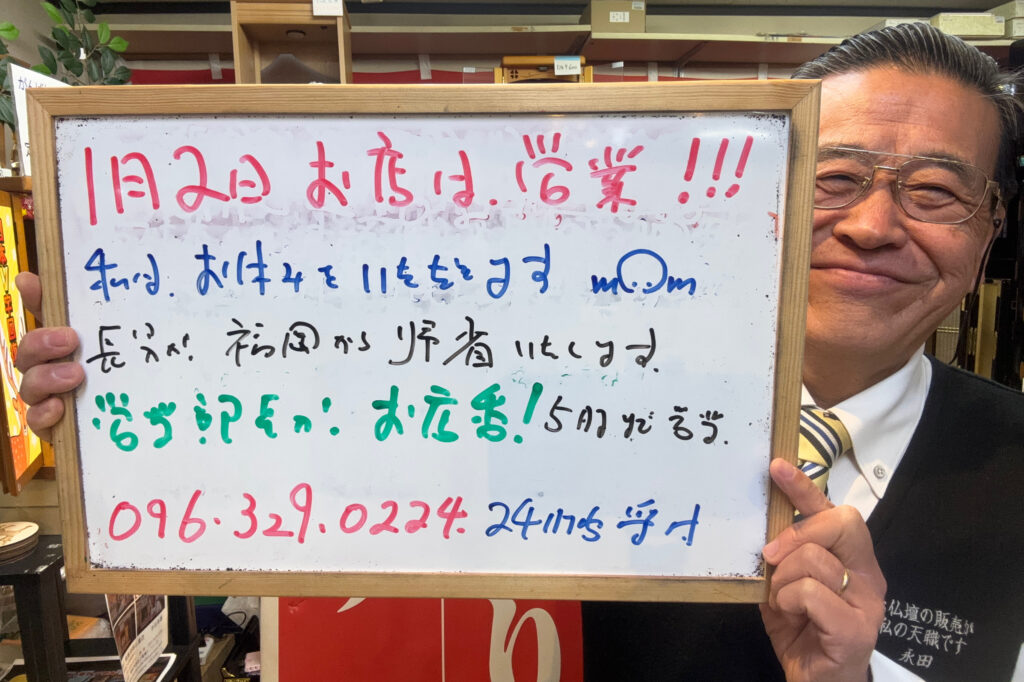 1月2日 お店は、営業!!!
私は、お休みをいただきます m(..)m
長女が、福岡から帰省いたします。
営業部長が、お店番! 5時まで営業。
096.329.0224. 24時間受付
仏壇の販売が
私の天職です
永田